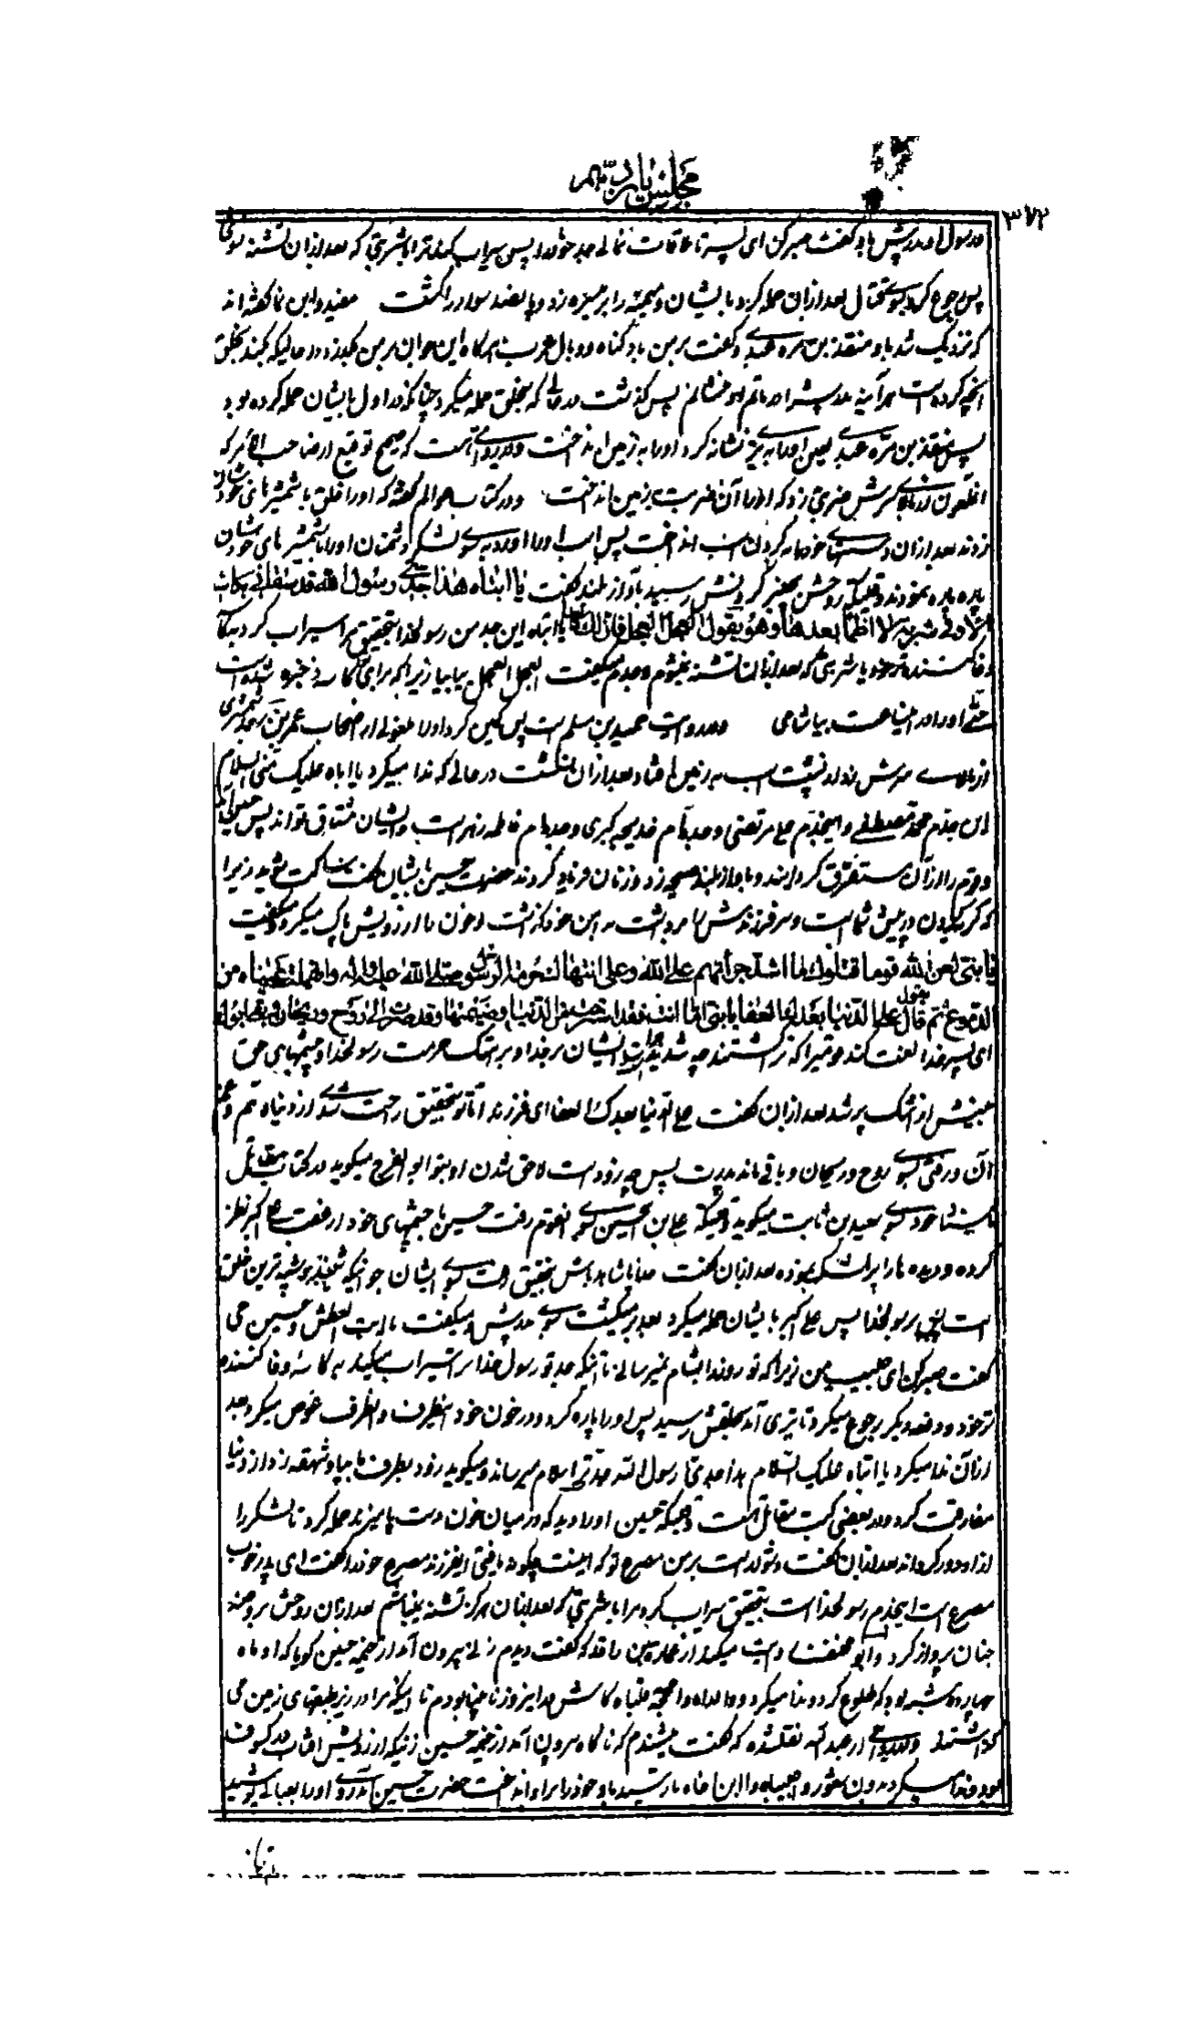 مجلس یازدهم
۳۷۲
پدرش باو گفت صبر کن ای پسر تا ملاقات نمائی جد خود را پس سیراب کند ترا بشربتی که بعد ازان تشنه نشوی
پس رجوع کرد بسوی قتال بعد ازان حمله کرد بایشان و میمنه را بر میسره زد و پانصد سوار را کشت مفید و ابن نما گفته‌اند
که نزدیک شد باو منقذ بن مره عبدی و گفت بر من باد گناه و وبال عرب هرگاه این جوان بر من بگذرد در حالیکه بکند بخلق
انچه کرده است هر آینه پدرش را در ماتم او بنشانم پس گذشت در حالی که بخلق حمله میکرد چنانکه در اول بایشان حمله کرده بود
پس منقذ بن مره عبدی لعین او را به نیزه نشانه کرد او را به زمین انداخت و در روایتی است که
سرش ضربتی زد که او را آن ضربت بزمین انداخت و در کتاب عوالم گفته که او را خلق با شمشیرهای خودشان
زدند بعد ازان دستهای خود را به گردن اسب انداخت پس اسب او را آورد بسوی لشکر دشمنان او را بشمشیرهای خودشان
پاره پاره نمودند وقتیکه روحش بحنجر گردنش رسید بآواز بلند گفت یا ابتاه هذا جدی رسول الله قد سقانی بکاسه
الاوفی شربة لا اظمأ بعدها و هو یقول العجل العجل فان لک کاسا یا ابتاه این جد من رسولخدا بتحقیق مرا سیراب کرد به کاسه
وفا کننده خود با شربتی که بعد ازان تشنه نیشوم و جدم میگفت العجل العجل بیا بیا زیرا که برای تو کاسه ذخیره شده است
حتی او را در این ساعت بیاشامی و در روایت حمید بن مسلم است پس کمین کرد او را ملعونی از اصحاب عمر بن سعد
از بالای سرش زد از پشت اسب به زمین افتاد بعد ازان نشست در حالی که ندا میکرد یا اباه علیک منی السلام
این جدم محمد مصطفی و اینجدم علی مرتضی و جده‌ام خدیجه کبری و جده‌ام فاطمه زهرا است و ایشان مشتاق تواند پس حسین
و قوم را ازان متفرق کردانید و بآواز بلند صیحه زد و زنان فریاد کردند حضرت حسین بایشان گفت ساکت شوید زیرا
که گریه کردن در پیش شما است و سر فرزندش را برداشت به دامن خود گذاشت و خون را از رویش پاک میکرد و میگفت
یا بنی لعن الله قوما قتلوک ما اشد جرأتهم علی الله و علی انتهاک حرمة الرسول صلی الله علیه و اله و انهملت عیناه من
الدموع ثم قال علی الدنیا بعدک العفا یا بنی اما انت فقد استرحت من الدنیا و ضیمها و قد صرت الی روح و ریحان و بقی ابوک
ای پسر خدا لعنت کند قومیرا که ترا کشتند چه شدید است جرأت ایشان بر خدا و بر هتک حرمت رسولخدا و چشمهای حق
بینش از اشک پر شد بعد ازان گفت علی الدنیا بعدک العفا ای فرزند اما تو بتحقیق راحت شدی از دنیا و هم و غم
آن و رفتی بسوی روح و ریحان و باقی ماند پدرت پس چه زود است لاحق شدن او بتو ابو الفرج میگوید در کتاب مقاتل
سعید بن ثابت میگوید وقتیکه علی بن الحسین بسوی انقوم رفت حسین با چشمهای خود از عقب علی اکبر نظر
کرده و دیده‌ها را پر اشک نموده بعد ازان گفت خدایا شاهد باش بتحقیق رفت بسوی ایشان جوانیکه شبیه‌ترین خلق
است برسولخدا پس علی اکبر بایشان حمله میکرد بعد بر میگشت بسوی پدرش و میگفت یا ابت العطش و حسین می
گفت صبر کن ای حبیب من زیرا که تو روز را بشام نمیرسانی تا اینکه جد تو رسول خدا ترا سیراب میکند به کاسه وفا کننده
خود و دفعه دیگر رجوع میکرد تا تیری آمد بحلقش رسید پس او را پاره کرد و در خون خود اینطرف و انطرف غوص میکرد بعد
ازان ندا میکرد یا ابتاه علیک السلام هذا جدی رسول الله جد تو ترا سلام میرساند و میگوید زود بطرف ما بیا و شهقه زد از دنیا
مفارقت کرد و در بعضی کتب مقاتل است وقتیکه حسین او را دید که در میان خون دست پا میزند حمله کرد تا لشکر را
از او دور کرداند بعد ازان گفت دشوار است بر من مصرع تو که اینست چگونه یافتی ای فرزند مصرع خود را گفت ای پدر خوب
مصرع است اینجدم رسولخداست بتحقیق سیراب کرد مرا با شربتی که بعد ازان هرگز تشنه نمیباشم بعد ازان روحش بروضه
جنان پرواز کرد و ابو مخنف روایت میکند از عماره بن واقد که گفت دیدم زنی بیرون آمد از خیمه حسین گویا که او ماه
چهارده شبه بود که طلوع کرد و ندا میکرد وا ولداه وا مهجة قلباه کاش پیش از این روز نابینا بودم تا اینکه مرا در زیر طبقهای زمین می
گذاشتند و در روایتی از عبدالله نقلشده که گفت میشنیدم که ناگاه بیرون آمد از خیمه حسین زنیکه از رویش افتاب در کسوف
بود و ندا میکرد بدون شعور وا حبیباه وا ابن اخاه تا رسید باو خود را بر او انداخت حضرت حسین آمد روی او را بعبائی پوشید